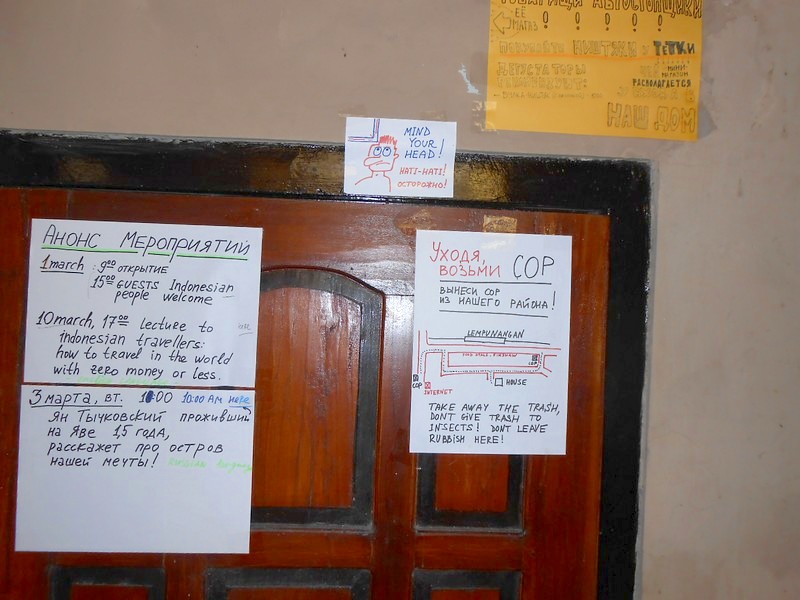 ТОВАРИЩИ АВТОСТОПЩИКИ
! ! ! ! !
ТЁТКИ
РАСПОЛАГАЕТСЯ
НАШ ДОМ
MIND
YOUR
HEAD!
HATI-HATI!
ОСТОРОЖНО!
Анонс Мероприятий
1 march : 9⁰⁰ открытие
15⁰⁰ GUESTS Indonesian
people welcome
10 march, 17⁰⁰ lecture to
indonesian travellers:
how to travel in the world
with zero money or less.
3 марта, вт. 10:00 10:00 AM Here
Ян Тычковский проживший
на Яве 15 года,
расскажет про остров
нашей мечты!
Уходя,
возьми СОР
ВЫНЕСИ СОР
ИЗ НАШЕГО РАЙОНА!
LEMPUNANGAN
СОР
INTERNET
HOUSE
TAKE AWAY THE TRASH,
DONT GIVE TRASH TO
INSECTS! DONT LEAVE
RUBBISH HERE!